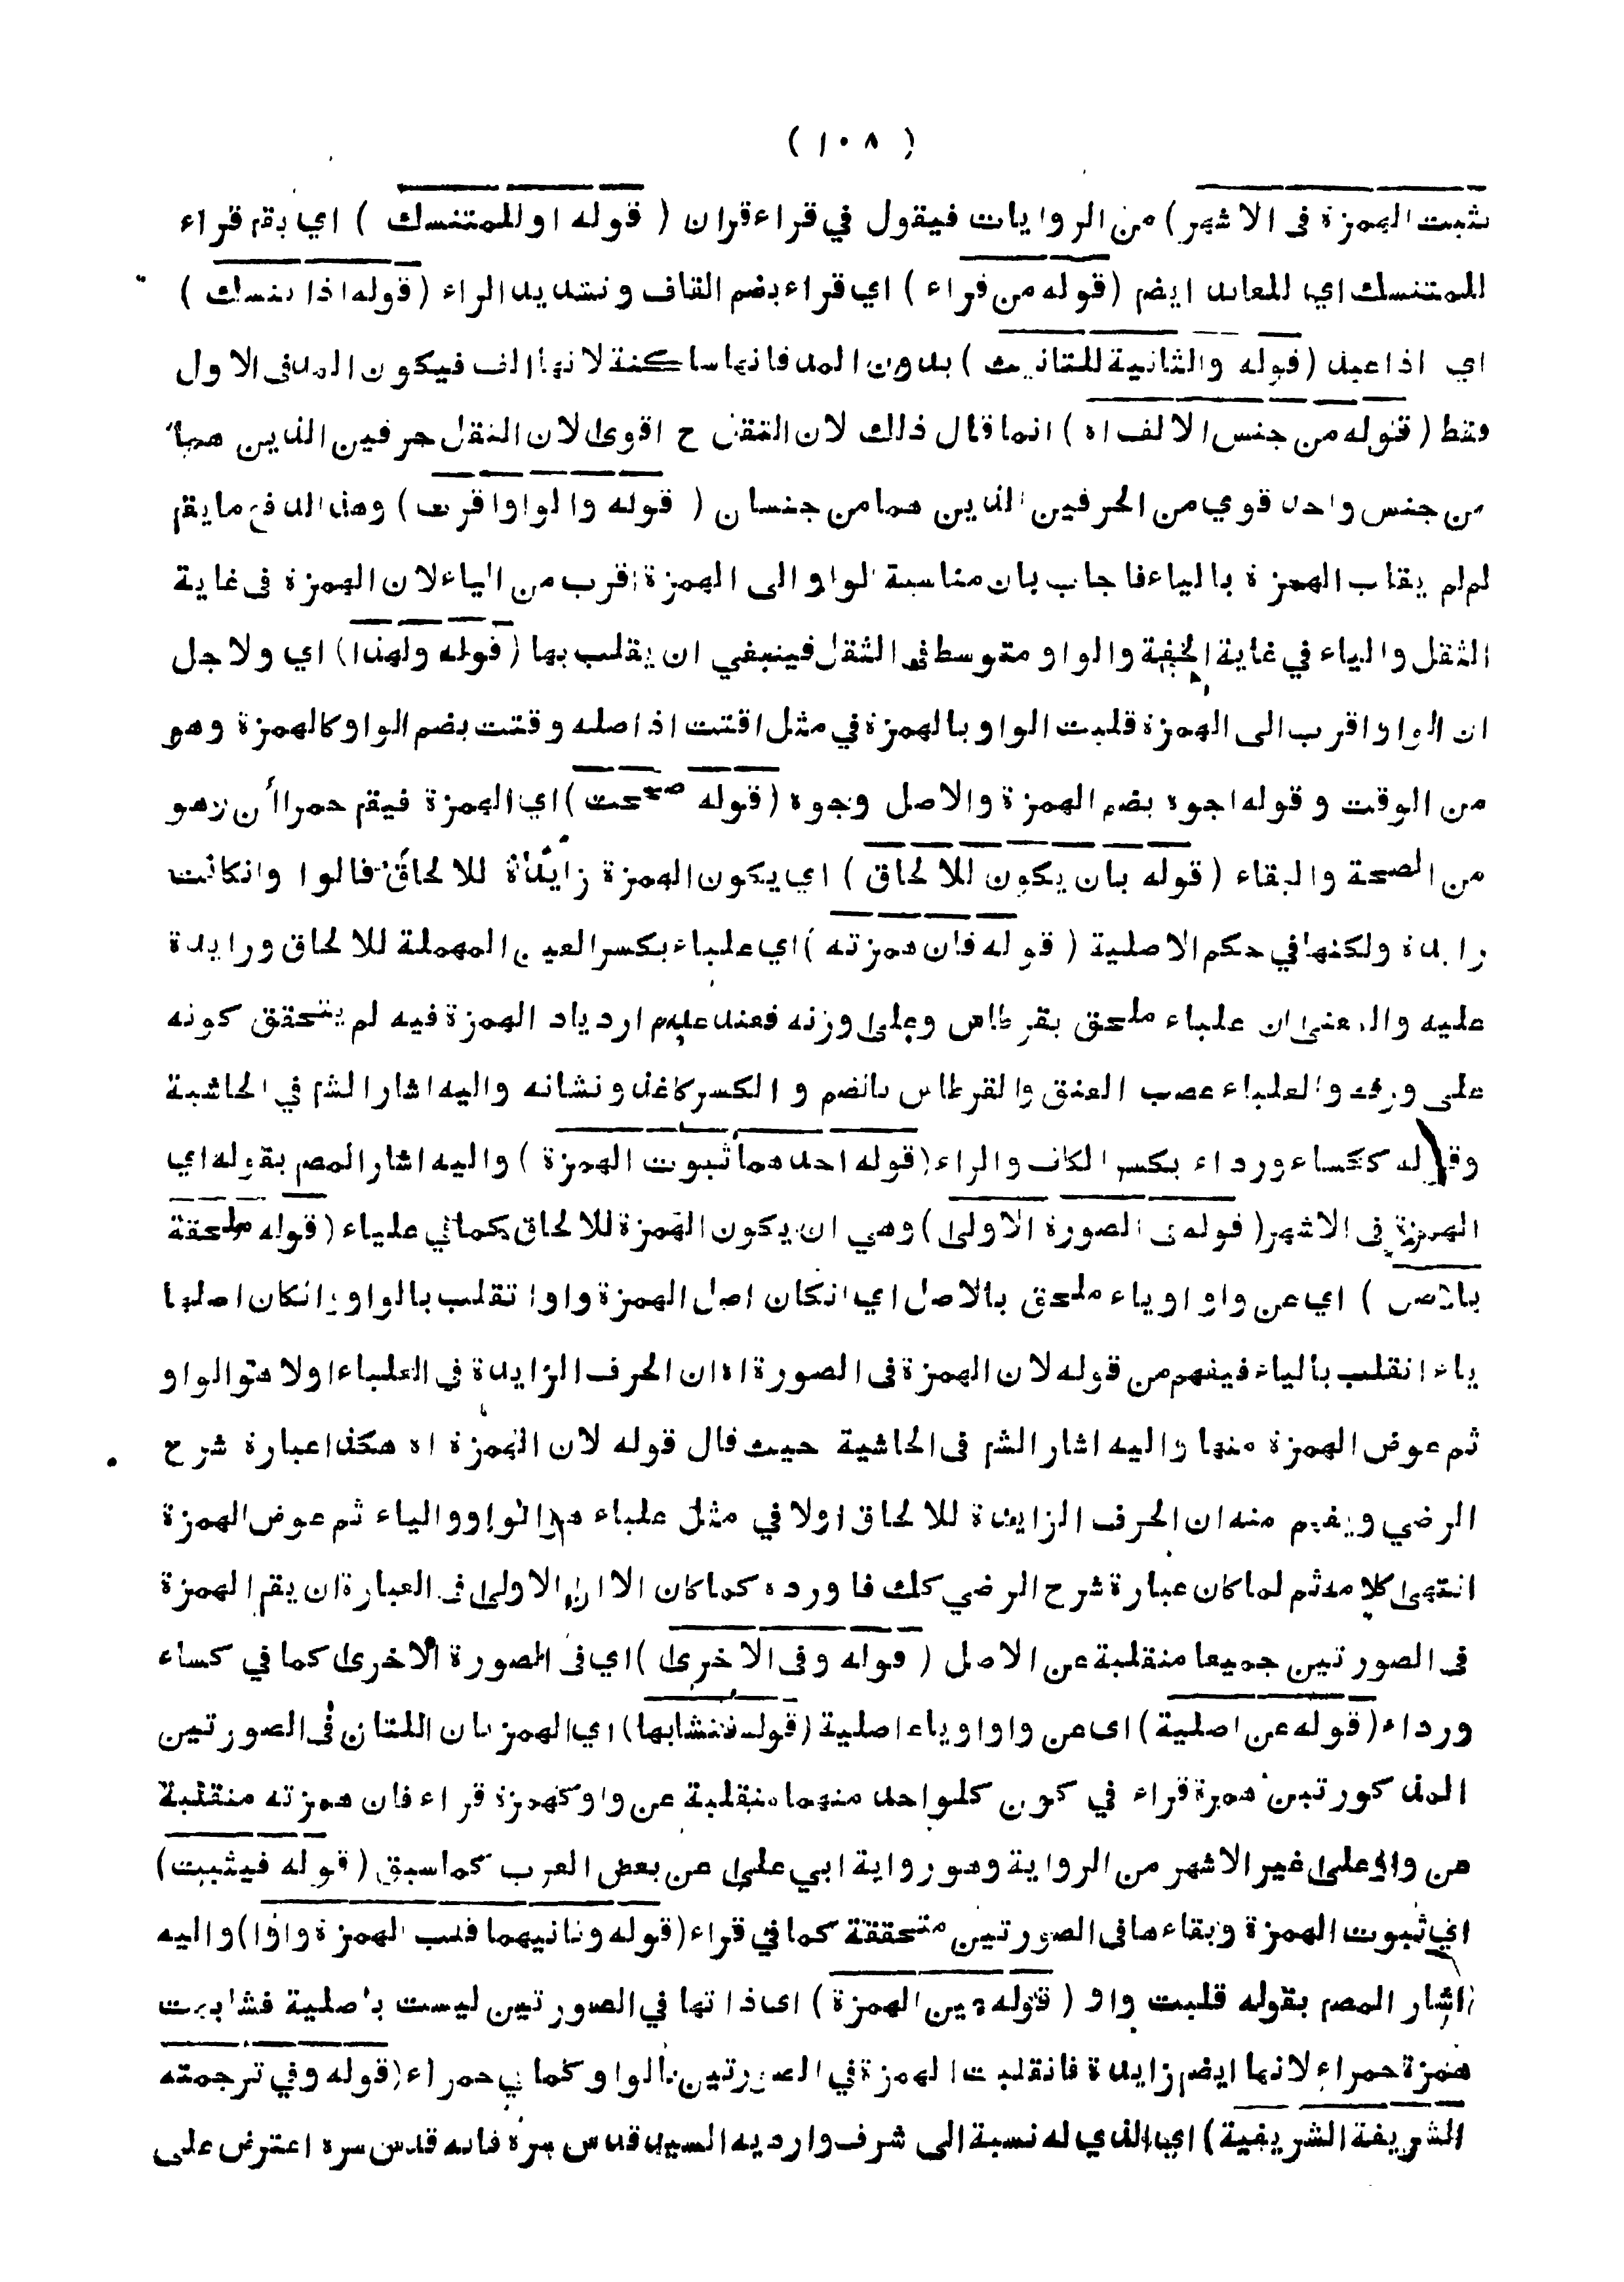 ( ١٠٨ )
يثبت الهمزة فى الاشهر ) من الروايات فيقول في قراء قران ( قوله او للمتنسك ) اي بقم قراء
للمتنسك اي للعابد ايضم ( قوله من قراء ) اي قراء بضم القاف وتشديد الراء ( قوله اذا تنسك )
اي اذا عبد ( قوله والثانية للتانيث ) بدون المد فانها ساكنة لانها الف فيكون المد فى الاول
فقط ( قوله من جنس الالف اه ) انما قال ذلك لان الثقل ح اقوى لان الثقل حرفين الذين هما
من جنس واحد قوي من الحرفين الذين هما من جنسان ( قوله والواو اقرب ) وهذا الدفع ما يقم
لم لم يقلب الهمزة بالياء فاجاب بان مناسبة الواو الى الهمزة اقرب من الياء لان الهمزة فى غاية
الثقل والياء في غاية الخفة والواو متوسط فى الثقل فينبغي ان يقلب بها ( قوله ولهذا ) اي ولاجل
ان الواو اقرب الى الهمزة قلبت الواو بالهمزة في مثل اقتت اذ اصله وقتت بضم الواو كالهمزة وهو
من الوقت وقوله اجوه بضم الهمزة والاصل وجوه ( قوله صحت ) اي الهمزة فيقم حمراأن وهو
من الصحة والبقاء ( قوله بان يكون للالحاق ) اي يكون الهمزة زايدة للالحاق فالوا وانكانت
زايدة ولكنها في حكم الاصلية ( قوله فان همزته ) اي علباء بكسر العين المهملة للالحاق وزايدة
عليه والمعنى ان علباء ملحق بقرطاس وعلى وزنه فعند عدم ازدياد الهمزة فيه لم يتحقق كونه
على وزنه والعلباء عصب العنق والقرطاس بالضم والكسر كاغذ ونشانه واليه اشار الشم في الحاشية
وقوله ككساء ورداء بكسر الكاف والراء ( قوله احدهما ثبوت الهمزة ) واليه اشار المصم بقوله اي
الهمزة فى الاشهر ( قوله فى الصورة الاولى ) وهي ان يكون الهمزة للالحاق كما في علباء ( قوله ملحقة
بالاصل ) اي عن واو او ياء ملحق بالاصل اي انكان اصل الهمزة واوا تقلب بالواو وانكان اصلها
ياء انقلب بالياء فيفهم من قوله لان الهمزة فى الصورة اه ان الحرف الزايدة في العلباء اولا هو الواو
ثم عوض الهمزة منها واليه اشار الشم فى الحاشية حيث قال قوله لان الهمزة اه هكذا عبارة شرح
الرضي ويفهم منه ان الحرف الزايدة للالحاق اولا في مثل علباء هو الواو والياء ثم عوض الهمزة
انتهى كلامه ثم لما كان عبارة شرح الرضي كلك فاورده كما كان الا ان الاولى فى العبارة ان يقم الهمزة
فى الصورتين جميعا منقلبة عن الاصل ( قوله وفى الاخرى ) اي فى الصورة الاخرى كما في كساء
ورداء ( قوله عن اصلية ) اى عن واو او ياء اصلية ( قوله فتشابها ) اي الهمزتان اللتان فى الصورتين
المذكورتين همزة قراء في كون كلواحد منهما منقلبة عن واو كهمزة قراء فان همزته منقلبة
عن واو على غير الاشهر من الرواية وهو رواية ابي على عن بعض العرب كما سبق ( قوله فيثبت )
اي ثبوت الهمزة وبقاءها فى الصورتين متحققة كما في قراء ( قوله وثانيهما قلب الهمزة واوا ) واليه
اشار المصم بقوله قلبت واو ( قوله عين الهمزة ) اى ذاتها في الصورتين ليست باصلية فشابهت
همزة حمراء لانها ايضم زايدة فانقلبت الهمزة في الصورتين بالواو كما في حمراء ( قوله وفي ترجمته
الشريفة الشريفية ) اي الذي له نسبة الى شرف وارديه السيد قدس سره فانه قدس سره اعترض على